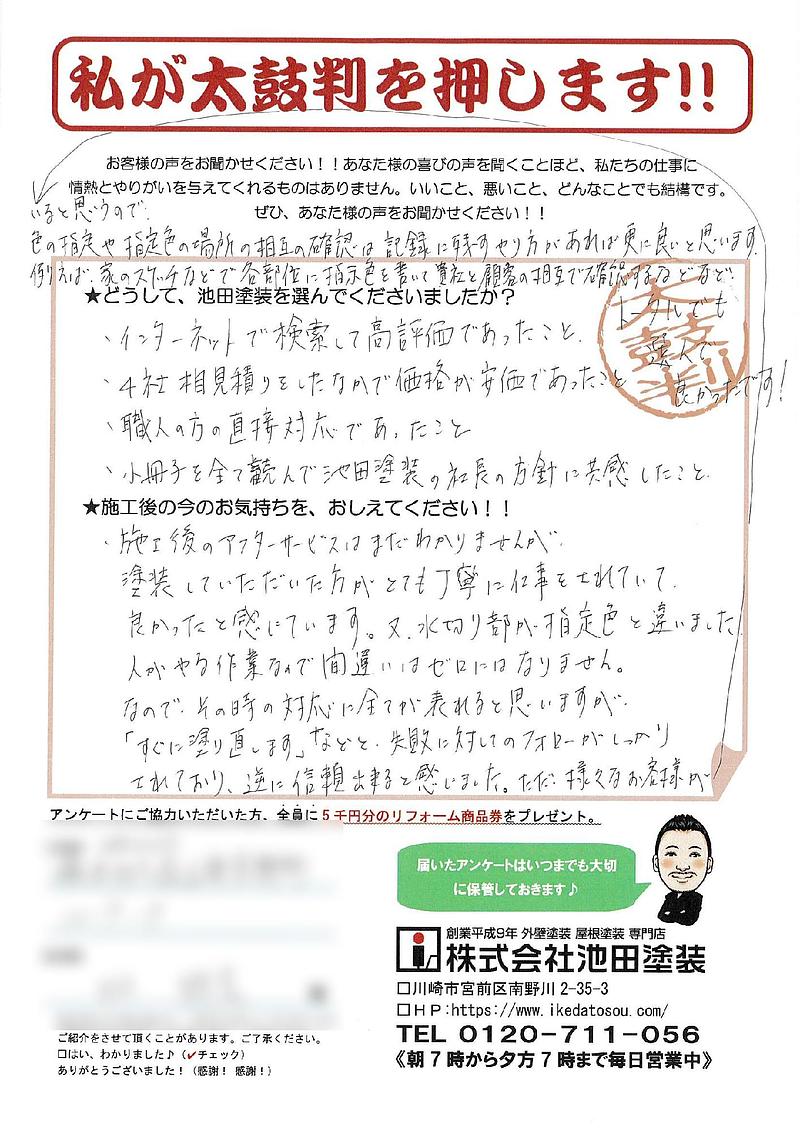 私が太鼓判を押します!!
お客様の声をお聞かせください！！あなた様の喜びの声を聞くことほど、私たちの仕事に
情熱とやりがいを与えてくれるものはありません。いいこと、悪いこと、どんなことでも結構です。
ぜひ、あなた様の声をお聞かせください！！
いると思うので、
色の指定や指定色の場所の相互の確認は記録に残すやり方があれば更に良いと思います。
例えば、家のスケッチなどで各部位に指示色を書いて貴社と顧客の相互で確認するなどなど、
トータルでも
選んで
良かったです！
太鼓判!!
★どうして、池田塗装を選んでくださいましたか？
・インターネットで検索して高評価であったこと、
・4社相見積りをしたなかで価格が安価であったこと
・職人の方の直接対応であったこと
・小冊子を全て読んで池田塗装の社長の方針に共感したこと、
★施工後の今のお気持ちを、おしえてください！！
・施工後のアフターサービスはまだわかりませんが、
塗装していただいた方がとても丁寧に仕事をされていて、
良かったと感じています。又、水切り部が指定色と違いました
人がやる作業なので間違いはゼロにはなりません。
なので、その時の対応に全てが表れると思いますが、
「すぐに塗り直します」などと、失敗に対してのフォローがしっかり
されており、逆に信頼出来ると感じました。ただ、様々なお客様が
アンケートにご協力いただいた方、全員に５千円分のリフォーム商品券をプレゼント。
届いたアンケートはいつまでも大切
に保管しておきます♪
創業平成9年 外壁塗装 屋根塗装 専門店
株式会社池田塗装
□川崎市宮前区南野川 2-35-3
□ＨＰ:https://www.ikedatosou.com/
TEL 0120-711-056
《朝７時から夕方７時まで毎日営業中》
ご紹介をさせて頂くことがあります。ご了承ください。
□はい、わかりました♪（✓チェック）
ありがとうございました！（感謝！感謝！）